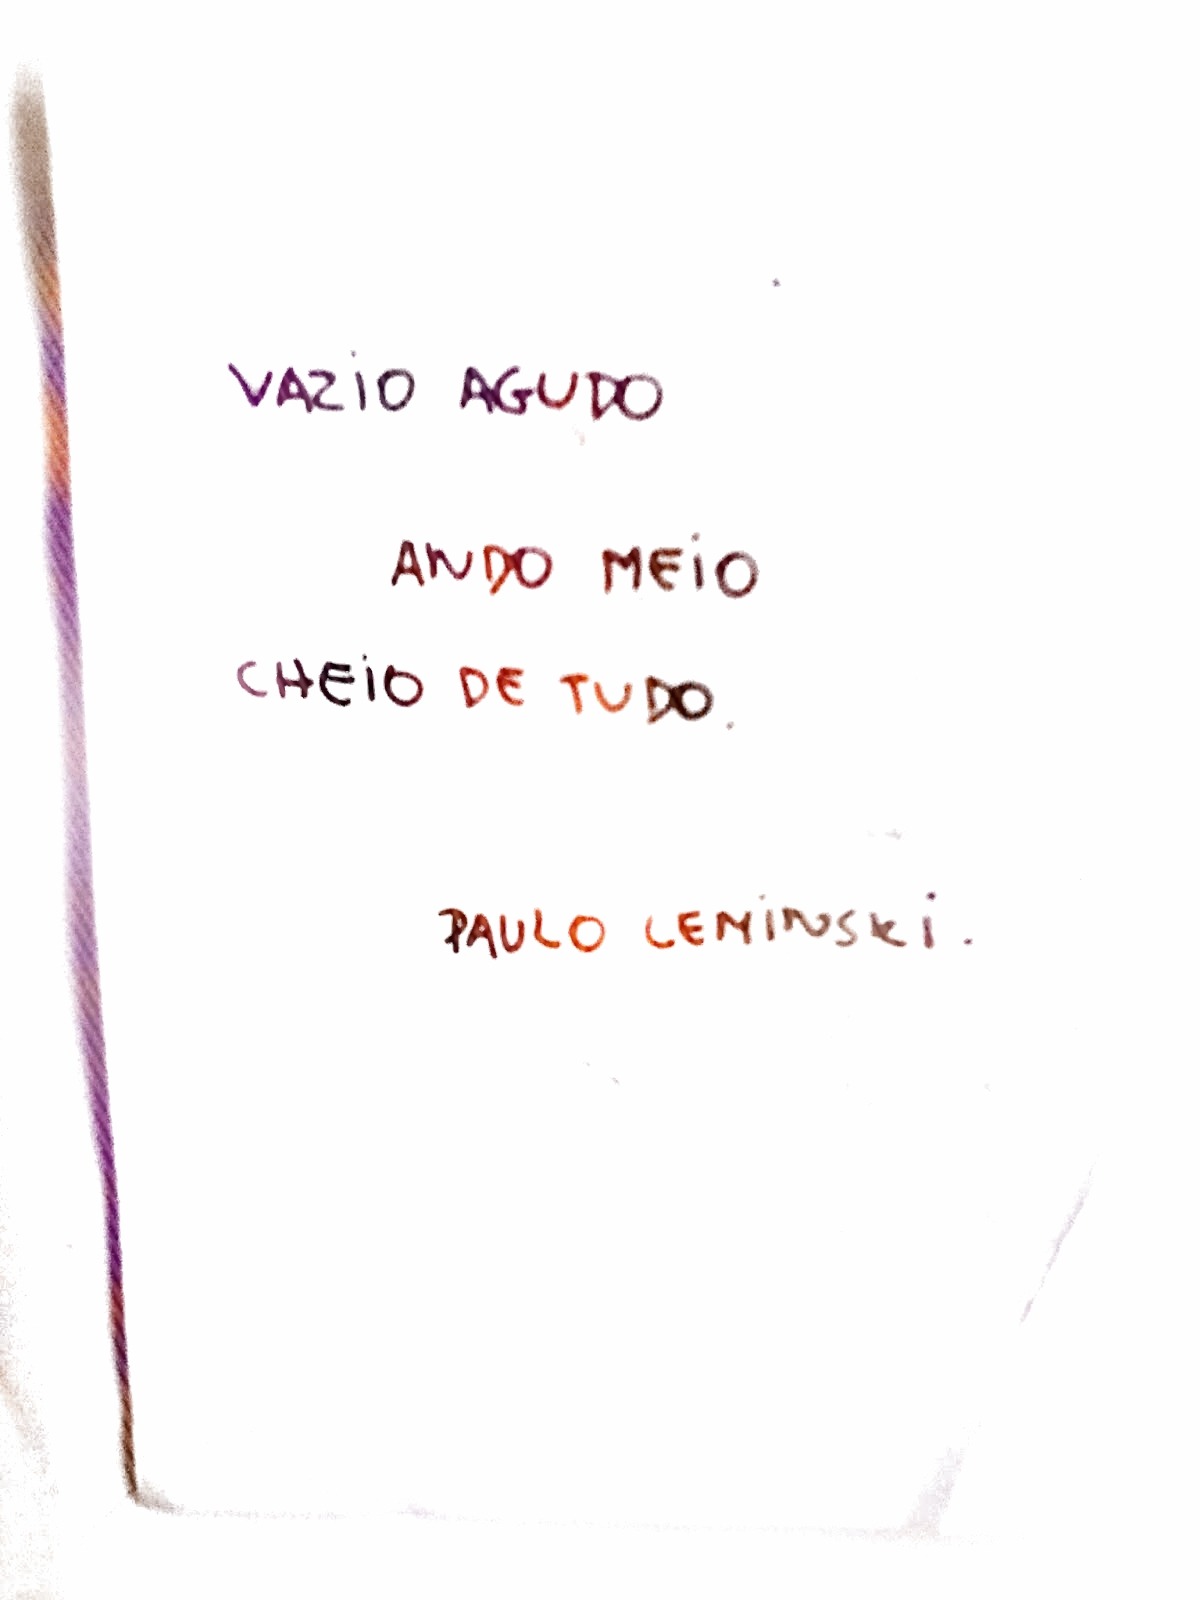 VAZiO AGUDO
ANDO MEiO
CHEiO DE TUDO.
PAULO LEMiNSKi.